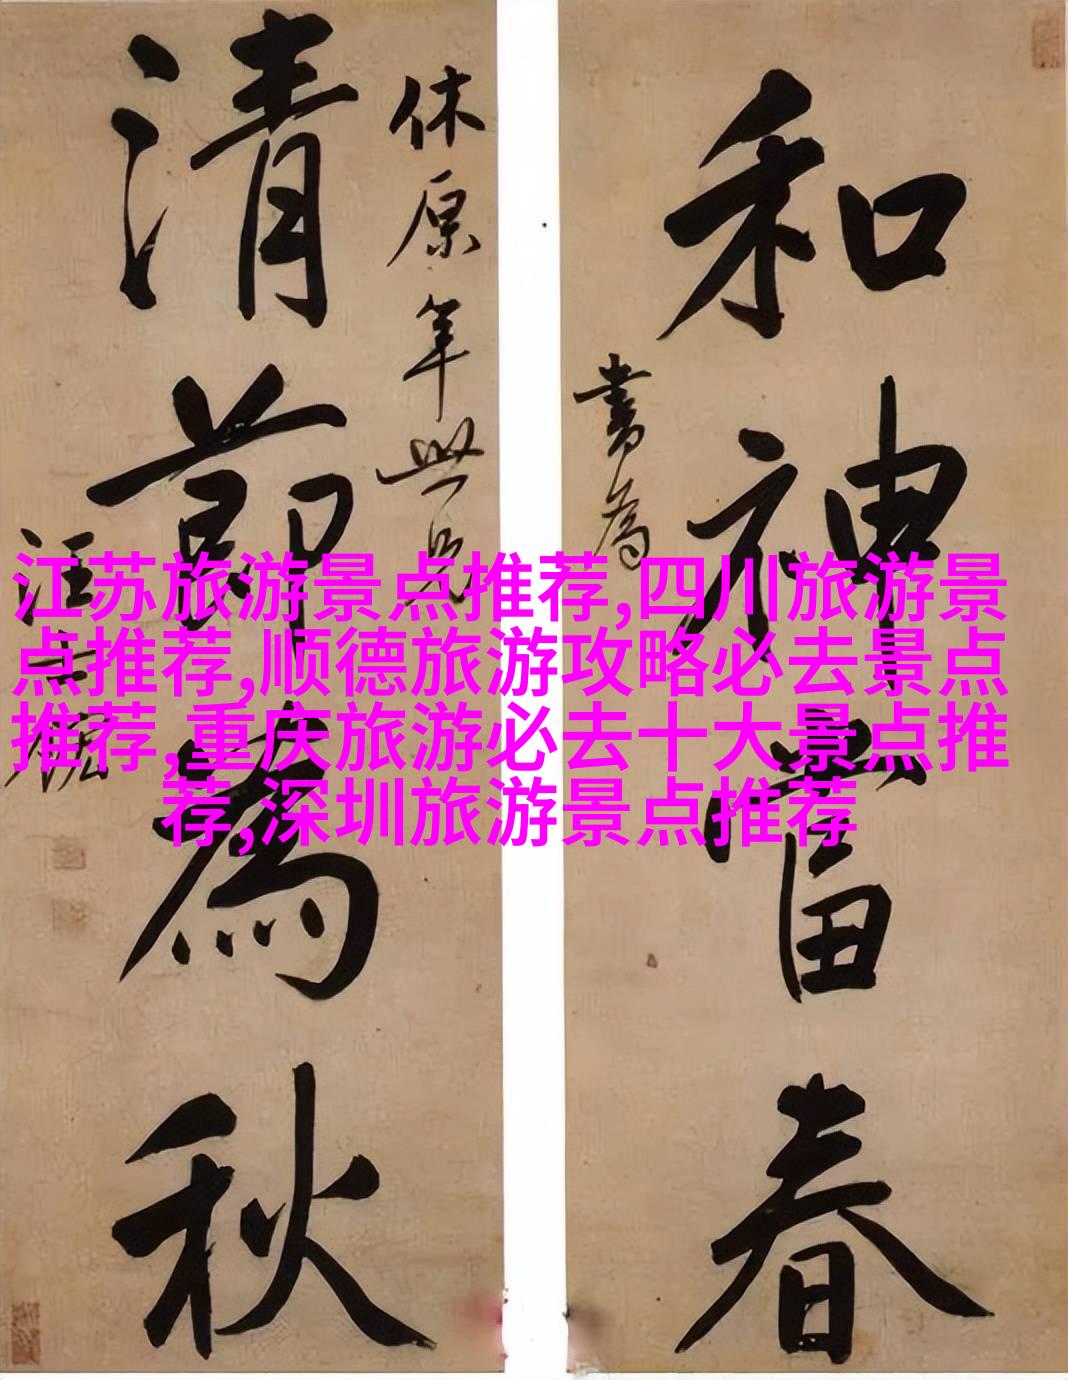 和神當春
書為
休原年世兄
清節為秋
汪士鋐
江苏旅游景点推荐,四川旅游景
点推荐,顺德旅游攻略必去景点
推荐,重庆旅游必去十大景点推
荐,深圳旅游景点推荐